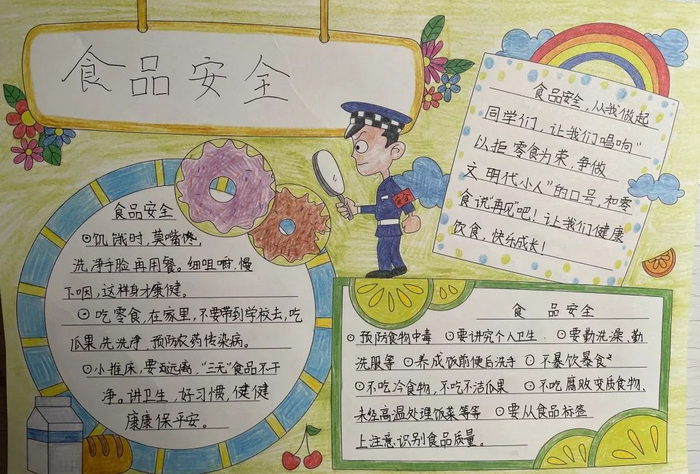 食品安全
食品安全
⊙饥饿时,莫嘴馋,
洗净手脸再用餐。细咀嚼,慢
下咽,这样身才康健。
⊙吃零食,在家里,不要带到学校去,吃
瓜果,先洗净,预防农药传染病。
⊙小推床,要远离,“三无”食品不干
净。讲卫生,好习惯,健健
康康保平安。
食品安全,从我做起
同学们,让我们唱响“
以拒零食为荣,争做
文明代小人”的口号,和零
食说再见吧!让我们健康
饮食,快乐成长!
食品安全
⊙预防食物中毒 ⊙要讲究个人卫生. ⊙要勤洗澡、勤
洗服等 ⊙养成饭前便后洗手 ⊙不暴饮暴食
⊙不吃冷食物,不吃不洁瓜果 ⊙不吃腐败变质食物、
未经高温处理饭菜等等 ⊙要从食品标签
上注意识别食品质量。